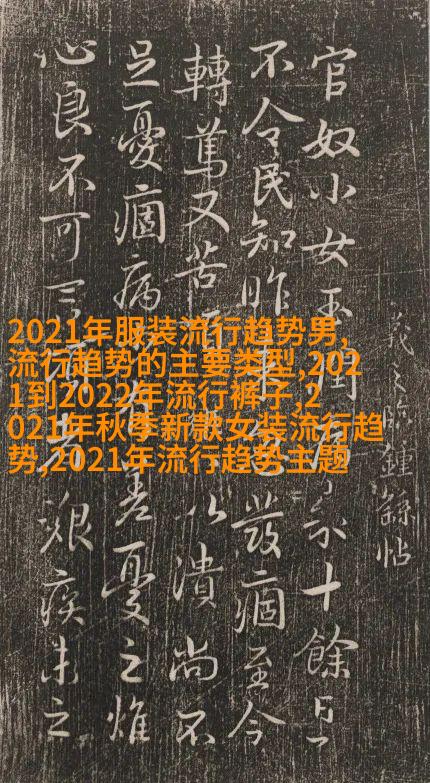 羲之臨鍾繇帖
官奴小女玉潤病來十餘日
不令民知昨來發痼至今
轉篤又苦以潰尚不
足憂痼病有差憂之燋
心良不可言艱疾未之
2021年服装流行趋势男,
流行趋势的主要类型,202
1到2022年流行裤子,2
021年秋季新款女装流行趋
势,2021年流行趋势主题